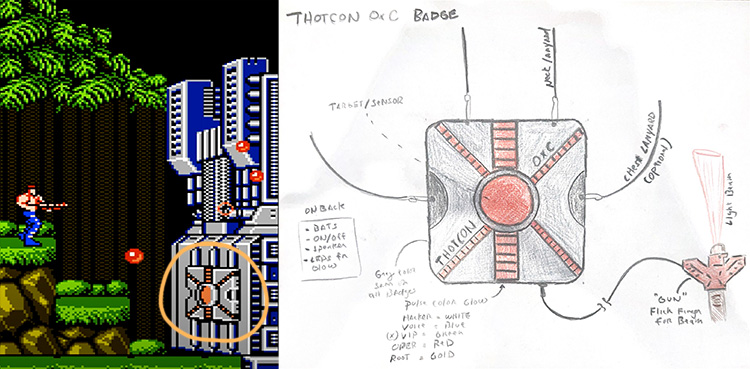 THOTCON OxC BADGE
NECK LANYARD
TARGET/SENSOR
OXC
CHEST LANYARD
(OPTIONAL)
Light Beam
ON BACK
- BATS
- ON/OFF
- SPEAKER
- LEDS
GLOW
THOTCON
Gray
all Badges
Pulse Color Glow
HACKER = WHITE
VOICE = BLUE
(x) VIP = Green
OPER = RED
ROOT = GOLD
"GUN"
Flick Finger
for Beam